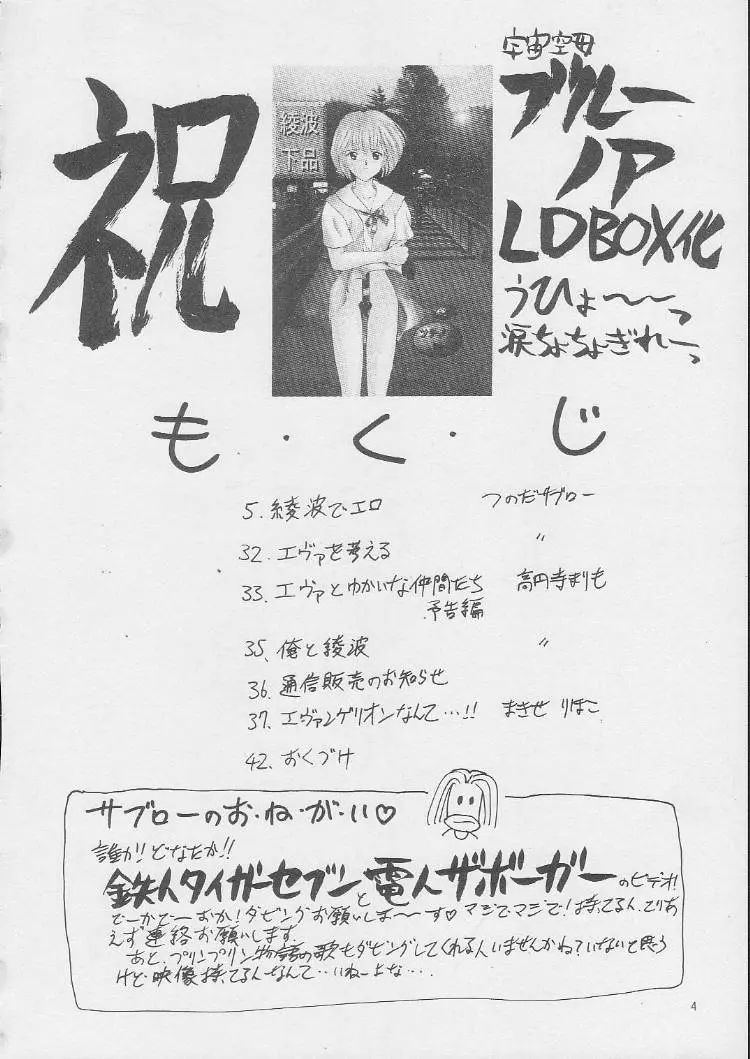 祝
綾波
下品
宇宙空母
ブルー
ノア
LDBOX化
うひょ〜〜っ
涙ちょちょぎれーっ
も・く・じ
5. 綾波でエロ つのだサブロー
32. エヴァを考える 〃
33. エヴァとゆかいな仲間たち 高円寺まりも
予告編
35. 俺と綾波 〃
36. 通信販売のお知らせ
37. エヴァンゲリオンなんて…!! まきせ りほこ
42. おくづけ
サブローのお・ね・が・い♡
誰か!どなたか!!
鉄人タイガーセブンと電人ザボーガーのビデオ!
どーかどーおか!ダビングお願いしま〜〜す♡マジでマジで!持ってるん
えず連絡お願いします。
あと、プリンプリン物語の歌もダビングしてくれる人いませんかね?いないと思う
けど映像持ってる人なんて…いねーよな…
4